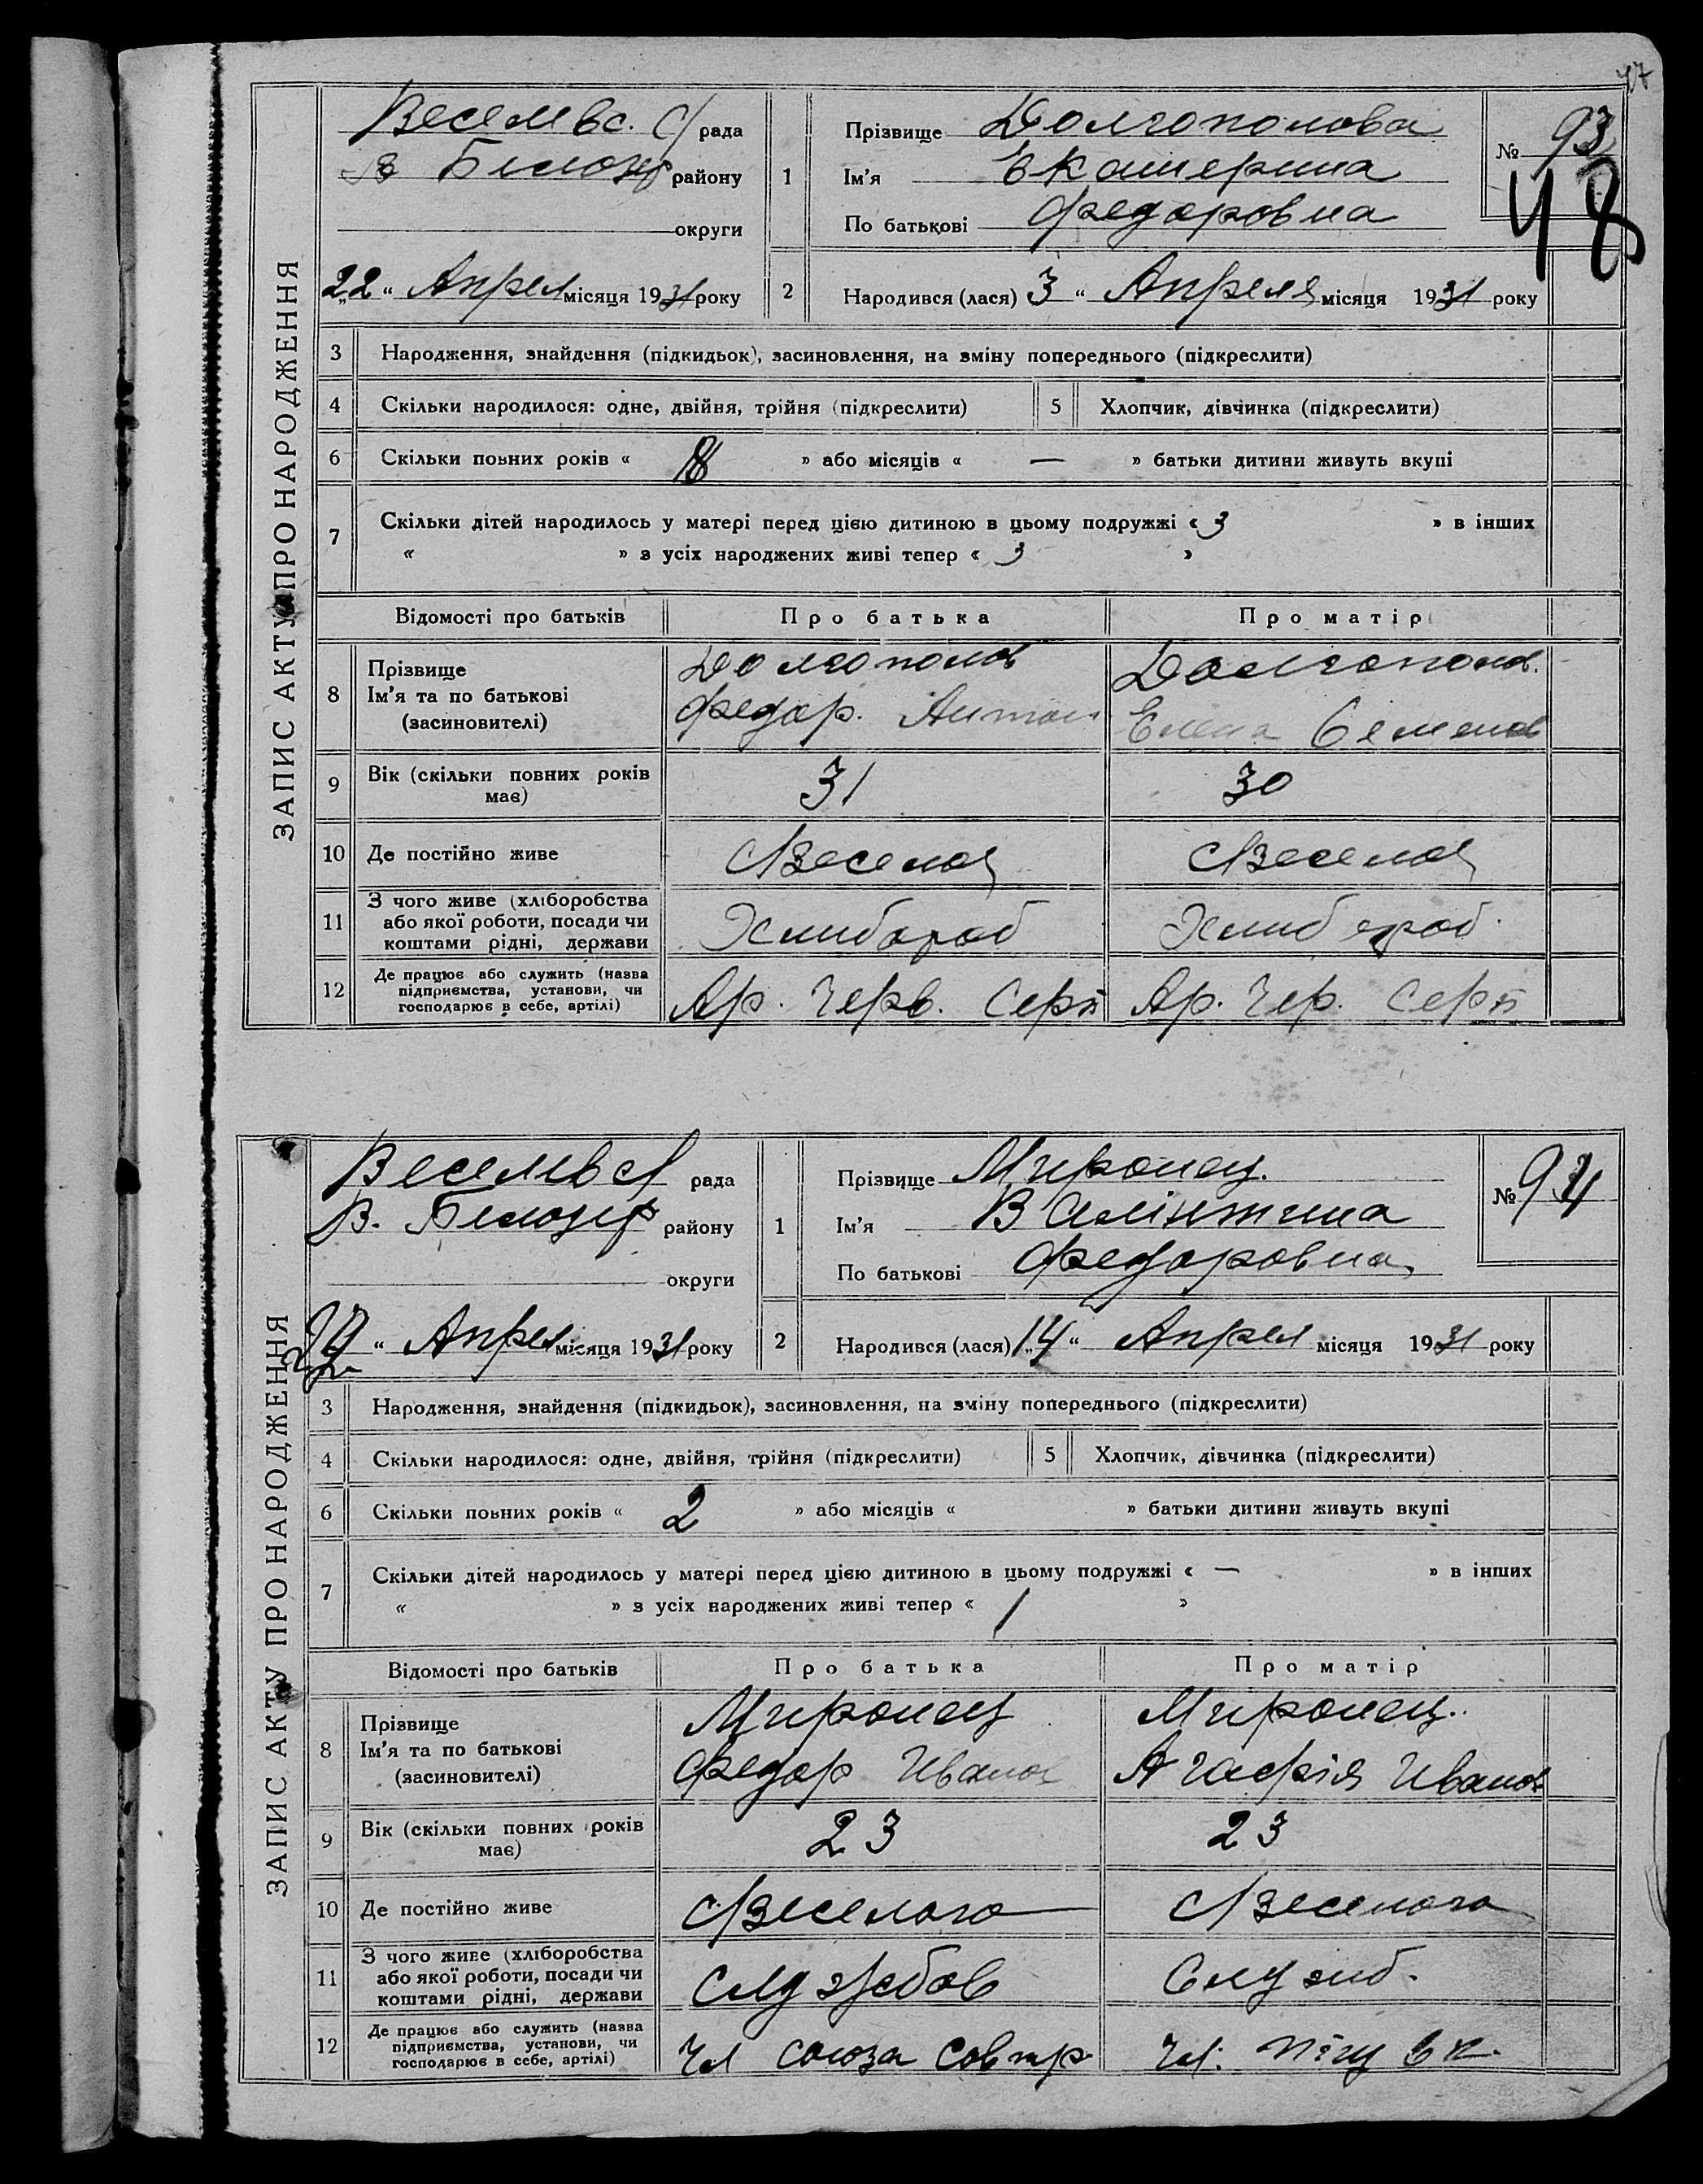 47
ЗАПИС АКТУ ПРО НАРОДЖЕННЯ
Весельвс. С/ рада
В Білозер району
округи
„22“ Апрел місяця 1931 року
1 Прізвище Долгополова
Ім'я Екатерина
По батькові Федоровна
№ 93
48
2 Народився (лася) 3 “ Апреля місяця 1931 року
3 Народження, знайдення (підкидьок), засиновлення, на зміну попереднього (підкреслити)
4 Скільки народилося: одне, двійня, трійня (підкреслити) 5 Хлопчик, дівчинка (підкреслити)
6 Скільки повних років « 8 » або місяців « — » батьки дитини живуть вкупі
7 Скільки дітей народилось у матері перед цією дитиною в цьому подружжі « 3 » в інших
« » з усіх народжених живі тепер « 3 »
Відомості про батьків Про батька Про матір
8 Прізвище Долгополов Долгополов.
Ім'я та по батькові Федор. Антон Елена Семенов
(засиновителі)
9 Вік (скільки повних років має) 31 30
10 Де постійно живе С/Весело С/Весело
11 З чого живе (хліборобства
або якої роботи, посади чи Хлибороб Хлиб ороб.
коштами рідні, держави
12 Де працює або служить (назва
підприємства, установи, чи
господарює в себе, артілі) Ар. Черв. Серп Ар. Чер. Серп
ЗАПИС АКТУ ПРО НАРОДЖЕННЯ
Весельв С/ рада
В. Білозер району
округи
22 “ Апрел місяця 1931 року
1 Прізвище Миронец.
Ім'я Валінтина
По батькові Федоровна
№ 94
2 Народився (лася) „14“ Апрел місяця 1931 року
3 Народження, знайдення (підкидьок), засиновлення, на зміну попереднього (підкреслити)
4 Скільки народилося: одне, двійня, трійня (підкреслити) 5 Хлопчик, дівчинка (підкреслити)
6 Скільки повних років « 2 » або місяців « » батьки дитини живуть вкупі
7 Скільки дітей народилось у матері перед цією дитиною в цьому подружжі « — » в інших
« » з усіх народжених живі тепер « 1 »
Відомості про батьків Про батька Про матір
8 Прізвище Миронец Миронец..
Ім'я та по батькові Федор Иванов Агафія Иванов
(засиновителі)
9 Вік (скільки повних років має) 23 23
10 Де постійно живе С/Веселого С/Веселого
11 З чого живе (хліборобства
або якої роботи, посади чи Службов Служб.
коштами рідні, держави
12 Де працює або служить (назва
підприємства, установи, чи
господарює в себе, артілі) Чл союза Совтр. Чл.